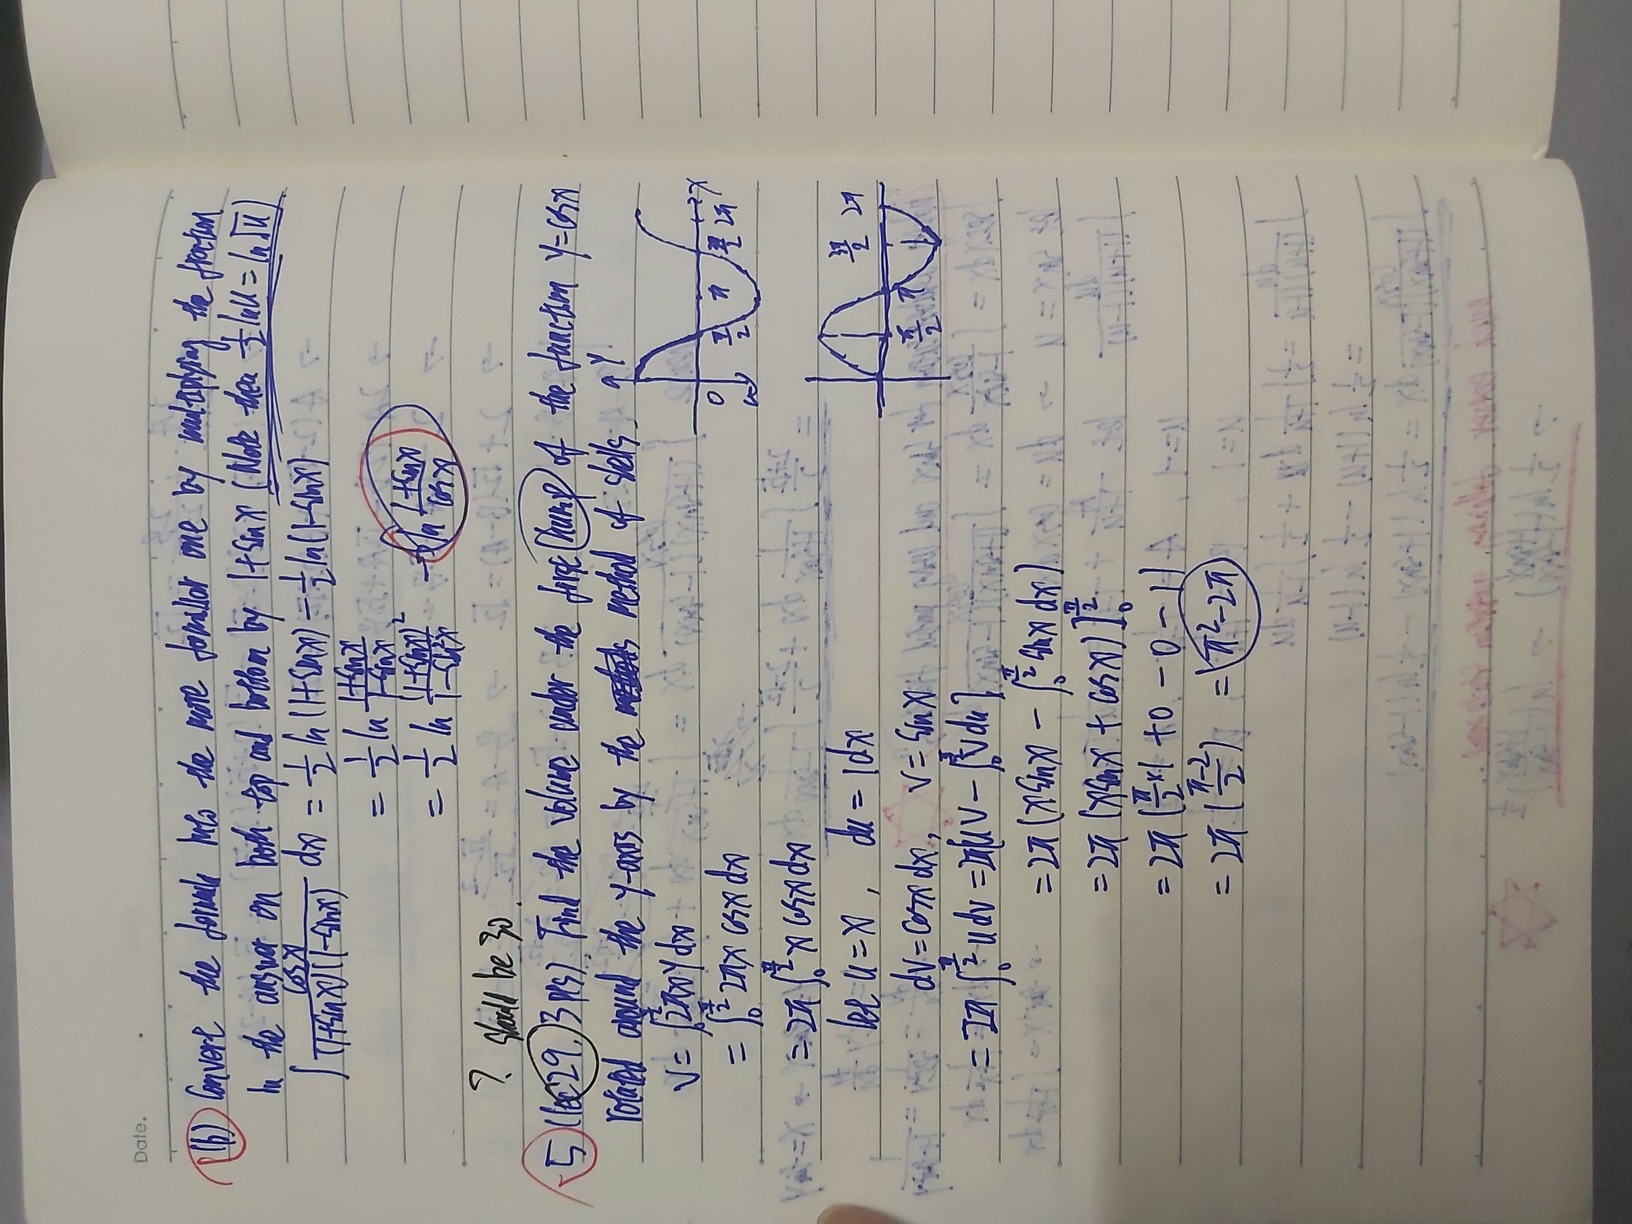 Date.
(b) Convert the formula into the more familiar one by multiplying the fraction
in the answer on both top and bottom by 1+sinx (Note then ½ ln u = ln √u)
∫ cosx/((1+sinx)(1-sinx)) dx = ½ ln(1+sinx) - ½ ln(1-sinx)
= ½ ln (1+sinx)/(1-sinx)
= ½ ln (1+sinx)²/(1-sin²x) → ln (1+sinx)/cosx
? should be 30.
5 (lec 29, 3pts) Find the volume under the first hump of the function y=cosx
rotated around the y-axis by the method of shells.
V = ∫₀^(π/2) 2πxy dx
= ∫₀^(π/2) 2πx cosx dx
= 2π ∫₀^(π/2) x cosx dx
let u = x, du = 1dx
dv = cosx dx, v = sinx
= 2π ∫₀^(π/2) u dv = 2π[uv - ∫₀^(π/2) v du]
= 2π (x sinx - ∫₀^(π/2) sinx dx)
= 2π (x sinx + cosx)]₀^(π/2)
= 2π (π/2 × 1 + 0 - 0 - 1)
= 2π ((π-2)/2) = π² - 2π
y
0 π/2 π 3π/2 2π x
3π/2 2π
π/2 π